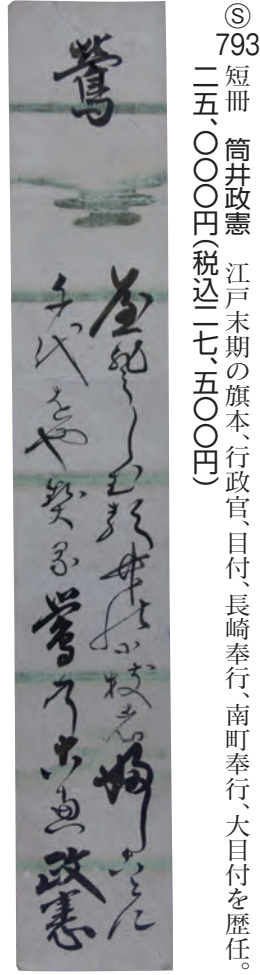 Ⓢ
793
短冊 筒井政憲 江戸末期の旗本、行政官、目付、長崎奉行、南町奉行、大目付を歴任。
二五、〇〇〇円(税込二七、五〇〇円)
鶯
小枝 婦しことに
千代をや契る鶯のこゑ 政憲